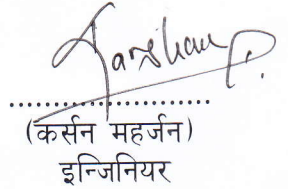 ..............................
(कर्सन महर्जन)
इन्जिनियर